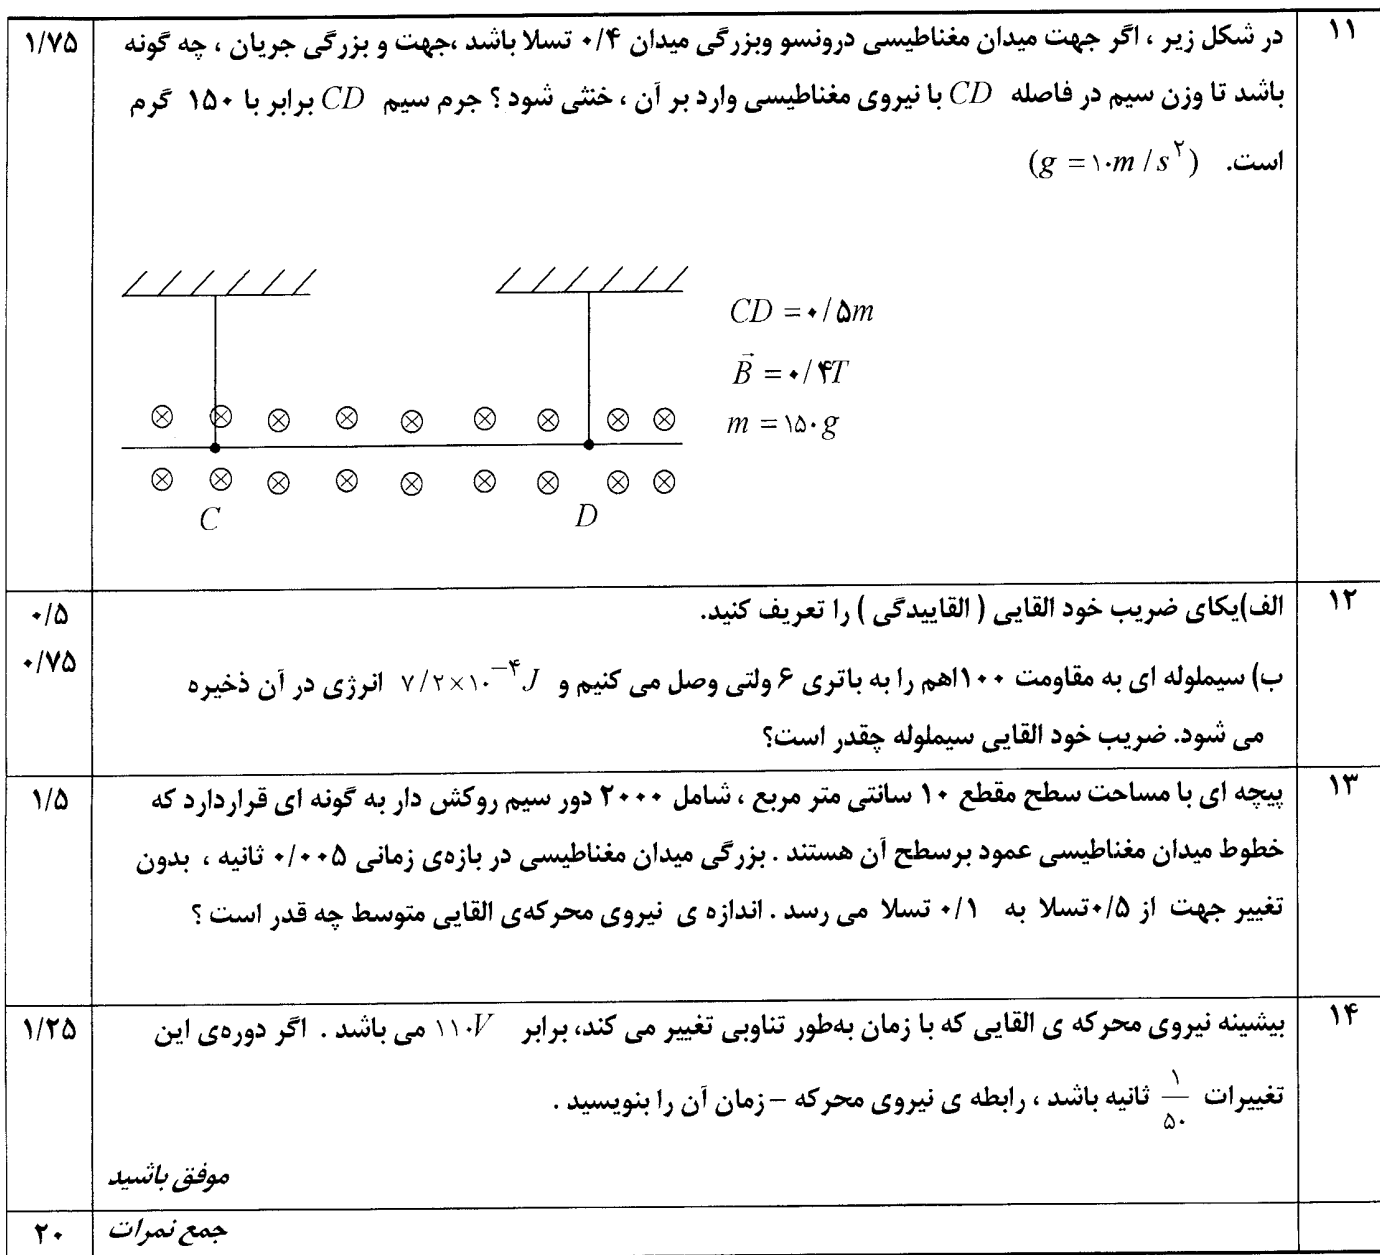 ۱۱ در شکل زیر ، اگر جهت میدان مغناطیسی درونسو وبزرگی میدان ۰/۴ تسلا باشد ،جهت و بزرگی جریان ، چه گونه ۱/۷۵
باشد تا وزن سیم در فاصله CD با نیروی مغناطیسی وارد بر آن ، خنثی شود ؟ جرم سیم CD برابر با ۱۵۰ گرم
است. (g = ۱۰m / s^۲)
CD = ۰/۵m
B⃗ = ۰/۴T
m = ۱۵۰g
⊗ ⊗ ⊗ ⊗ ⊗ ⊗ ⊗ ⊗ ⊗
⊗ ⊗ ⊗ ⊗ ⊗ ⊗ ⊗ ⊗ ⊗
C D
۱۲ الف)یکای ضریب خود القایی ( القاییدگی ) را تعریف کنید. ۰/۵
ب) سیملوله ای به مقاومت ۱۰۰اهم را به باتری ۶ ولتی وصل می کنیم و ۷/۲×۱۰^−۴ J انرژی در آن ذخیره ۰/۷۵
می شود. ضریب خود القایی سیملوله چقدر است؟
۱۳ پیچه ای با مساحت سطح مقطع ۱۰ سانتی متر مربع ، شامل ۲۰۰۰ دور سیم روکش دار به گونه ای قراردارد که ۱/۵
خطوط میدان مغناطیسی عمود برسطح آن هستند . بزرگی میدان مغناطیسی در بازه‌ی زمانی ۰/۰۰۵ ثانیه ، بدون
تغییر جهت از ۰/۵تسلا به ۰/۱ تسلا می رسد . اندازه ی نیروی محرکه‌ی القایی متوسط چه قدر است ؟
۱۴ بیشینه نیروی محرکه ی القایی که با زمان به‌طور تناوبی تغییر می کند، برابر ۱۱۰V می باشد . اگر دوره‌ی این ۱/۲۵
تغییرات ۱/۵۰ ثانیه باشد ، رابطه ی نیروی محرکه – زمان آن را بنویسید .
موفق باشید
جمع نمرات ۲۰